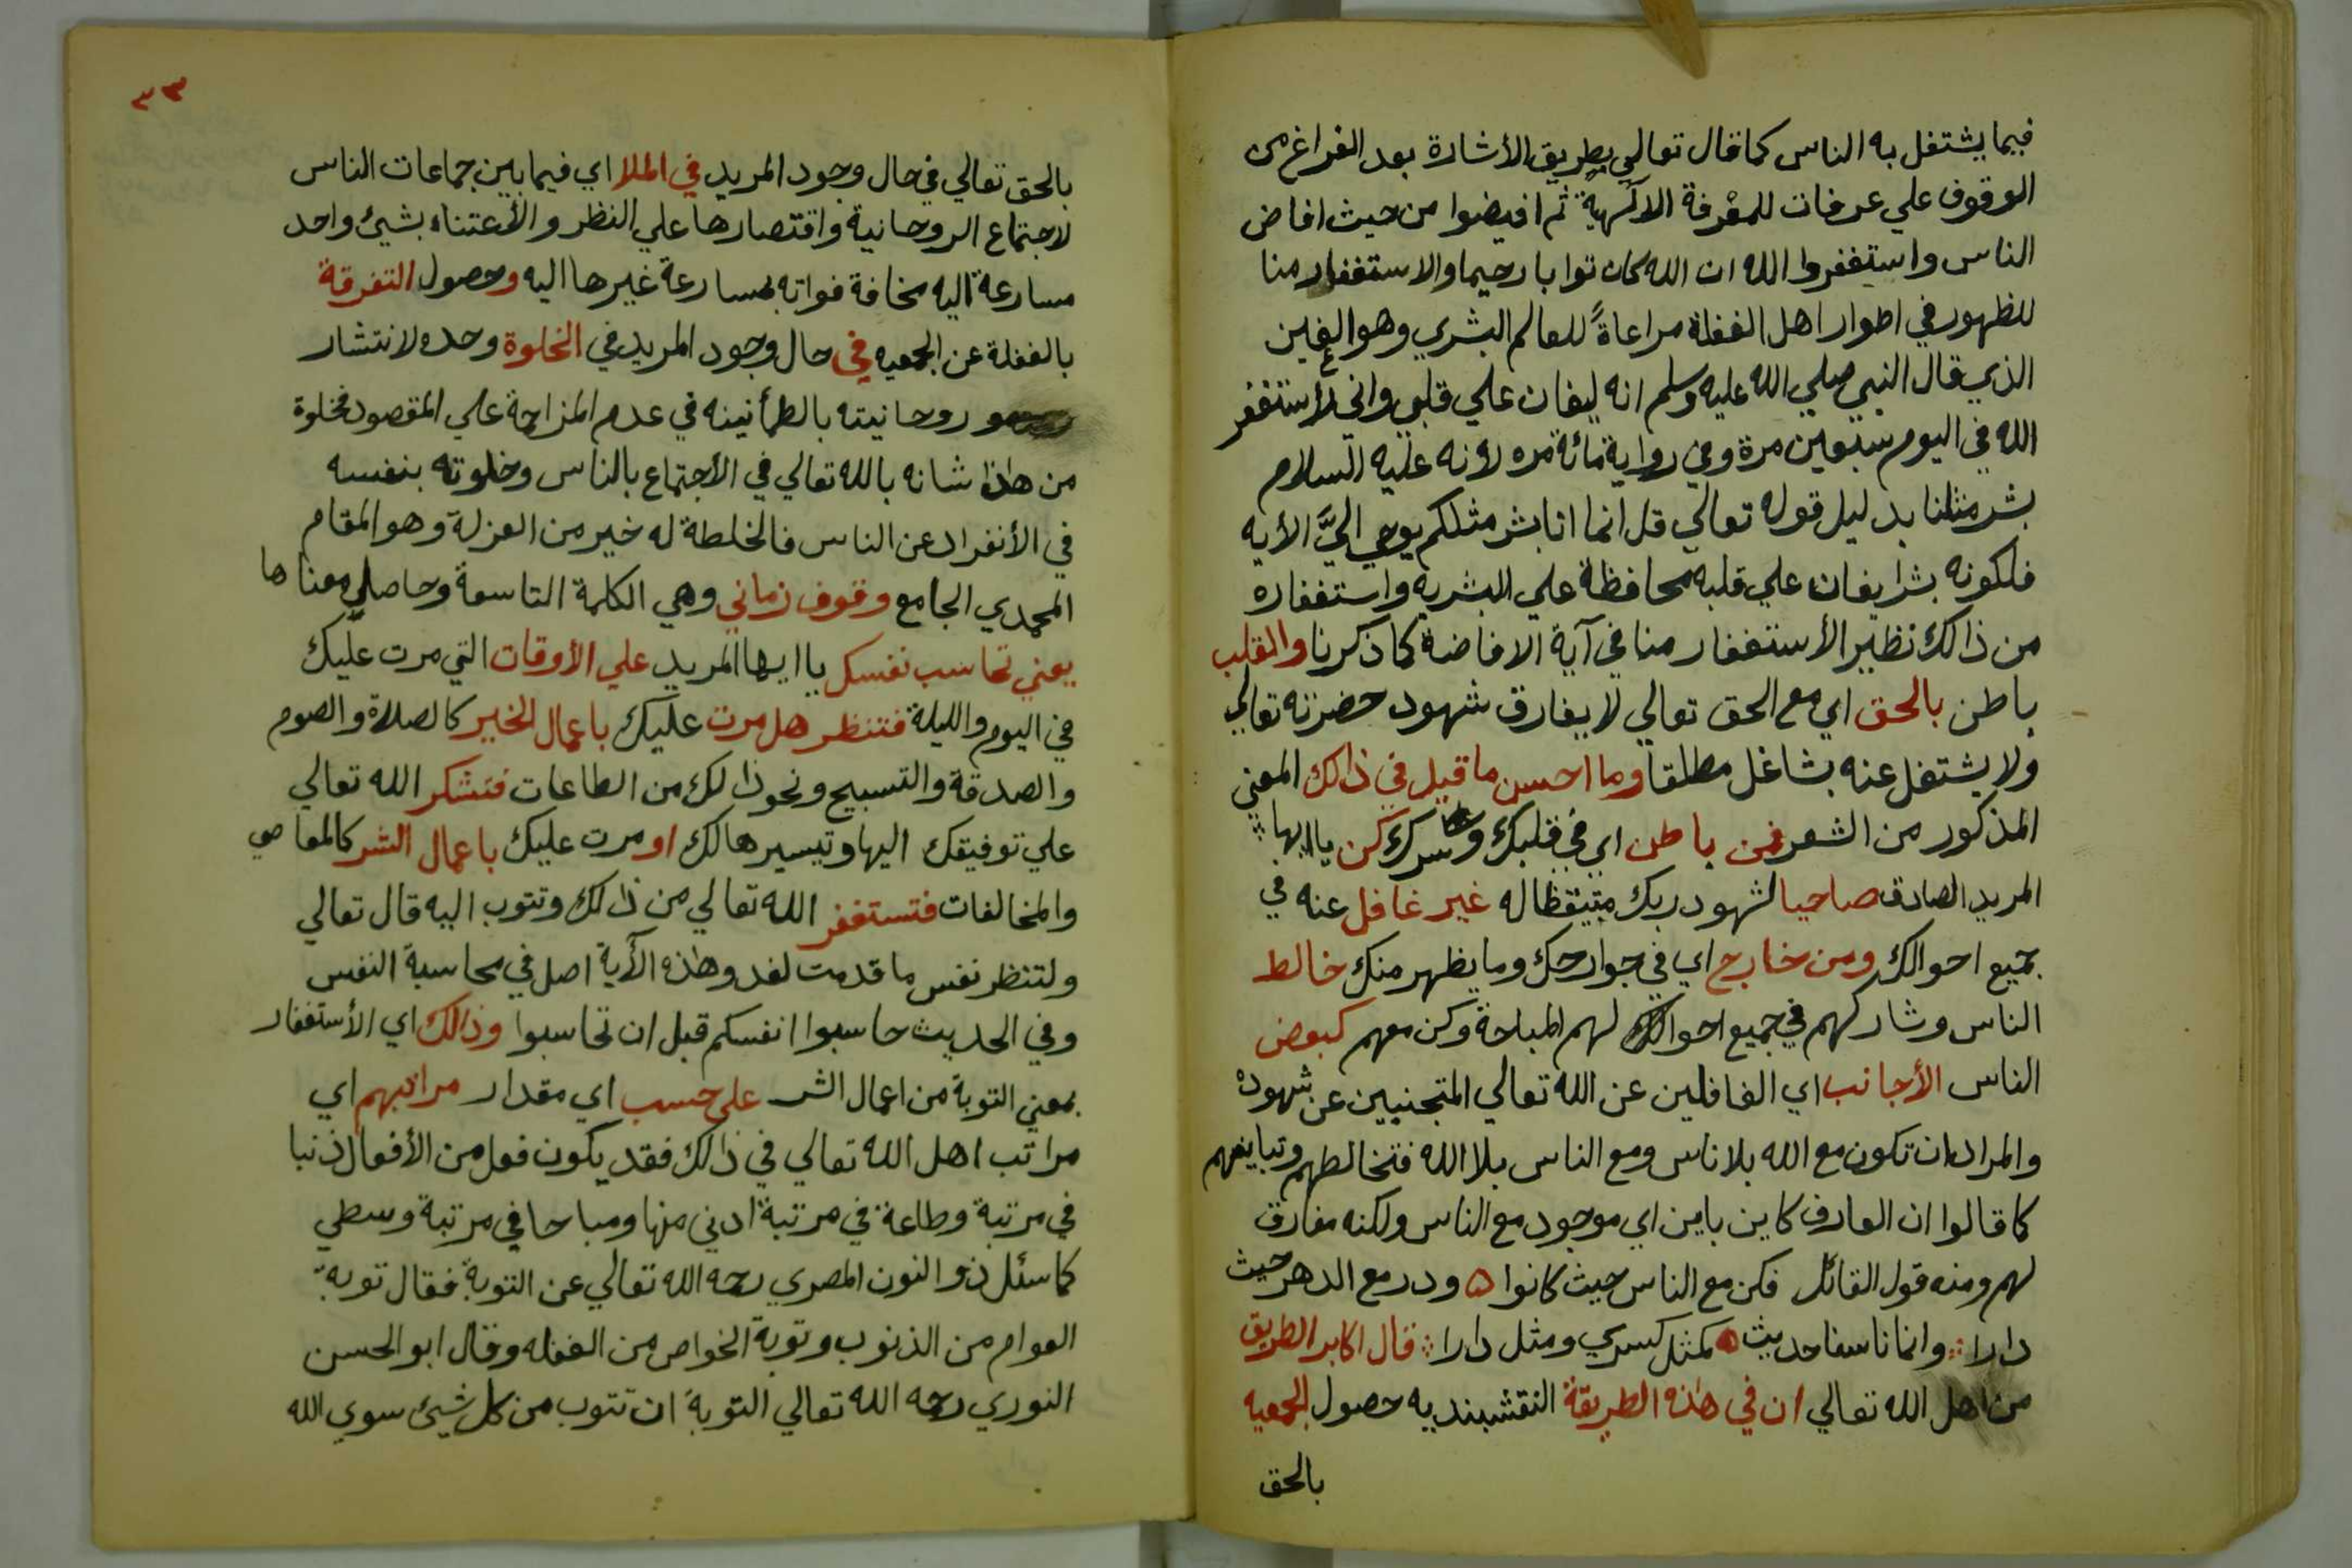 فيما يشتغل به الناس كما قال تعالي بطريق الأشارة بعد الفراغ من
الوقوف علي عرفات للمعْرفة الالهية ثم افيضوا من حيث افاض
الناس واستغفروا الله ان الله كان توابا رحيما والاستغفار منا
للظهور في اطوار اهل الغفلة مراعاةً للعالم البشري وهو الغين
الذي قال النبي صلي الله عليه وسلم انه ليغان علي قلبي واني لأستغفر
الله في اليوم سبعين مرة وفي رواية مائة مره لأنه عليه السلام
بشر مثلنا بدليل قوله تعالي قل انما انا بشر مثلكم يوحي اليَّ الأيه
فلكونه بشرا يغان علي قلبه محافظة علي البشريه واستغفاره
من ذالك نظير الأستغفار منا في آية الافاضة كما ذكرنا والقلب
باطن بالحق اي مع الحق تعالي لا يفارق شهود حضرته تعالي
ولا يشتغل عنه بشاغل مطلقا وما احسن ما قيل في ذالك المعني
المذكور من الشعر فمن باطن اي في قلبك وسرك كن يا ايها
المريد الصادق صاحيا لشهود ربك متيقظا له غير غافل عنه في
جميع احوالك ومن خارج اي في جوارحك وما يظهر منك خالط
الناس وشاركهم في جميع احوالك لهم المباحة وكن معهم كبعض
الناس الأجانب اي الغافلين عن الله تعالي المتجنبين عن شهوده
والمراد ان تكون مع الله بلا ناس ومع الناس بلا الله فتخالطهم وتبايعهم
كما قالوا ان العارف كاين باين اي موجود مع الناس ولكنه مفارق
لهم ومنه قول القائل فكن مع الناس حيث كانوا ه ودر مع الدهر حيث
دارا وانما ناسفا حديث كمثل كسري ومثل دارا قال اكابر الطريق
من اهل الله تعالي ان في هذه الطريقة النقشبنديه حصول الجمعيه
بالحق
٣٣
بالحق تعالي في حال وجود المريد في الملا اي فيما بين جماعات الناس
لاجتماع الروحانية واقتصارها علي النظر والأعتناء بشيئ واحد
مسارعة اليه مخافة فواته بمسارعة غيرها اليه وحصول التفرقة
بالغفلة عن الجمعيه في حال وجود المريد في الخلوة وحده لانتشار
روحانيته بالطمأنينه في عدم المزاحمة علي المقصود فخلوة
من هذا شانه بالله تعالي في الأجتماع بالناس وخلوته بنفسه
في الأنفراد عن الناس فالخلطة له خير من العزلة وهو المقام
المحمدي الجامع وقوف زماني وهي الكلمة التاسعة وحاصل معناها
يعني تحاسب نفسك يا ايها المريد علي الأوقات التي مرت عليك
في اليوم والليلة فتنظر هل مرت عليك باعمال الخير كالصلاة والصوم
والصدقة والتسبيح ونحو ذالك من الطاعات فتشكر الله تعالي
علي توفيقك اليها وتيسيرها لك او مرت عليك باعمال الشر كالمعاصي
والمخالفات فتستغفر الله تعالي من ذالك وتتوب اليه قال تعالي
ولتنظر نفس ما قدمت لغد وهذه الآية اصل في محاسبة النفس
وفي الحديث حاسبوا انفسكم قبل ان تحاسبوا وذالك اي الأستغفار
بمعني التوبة من اعمال الشر علي حسب اي مقدار مراتبهم اي
مراتب اهل الله تعالي في ذالك فقد يكون فعل من الأفعال ذنبا
في مرتبة وطاعة في مرتبة ادني منها ومباحا في مرتبة وسطي
كما سئل ذو النون المصري رحمه الله تعالي عن التوبة فقال توبة
العوام من الذنوب وتوبة الخواص من الغفله وقال ابو الحسن
النوري رحمه الله تعالي التوبة ان تتوب من كل شيئ سوي الله